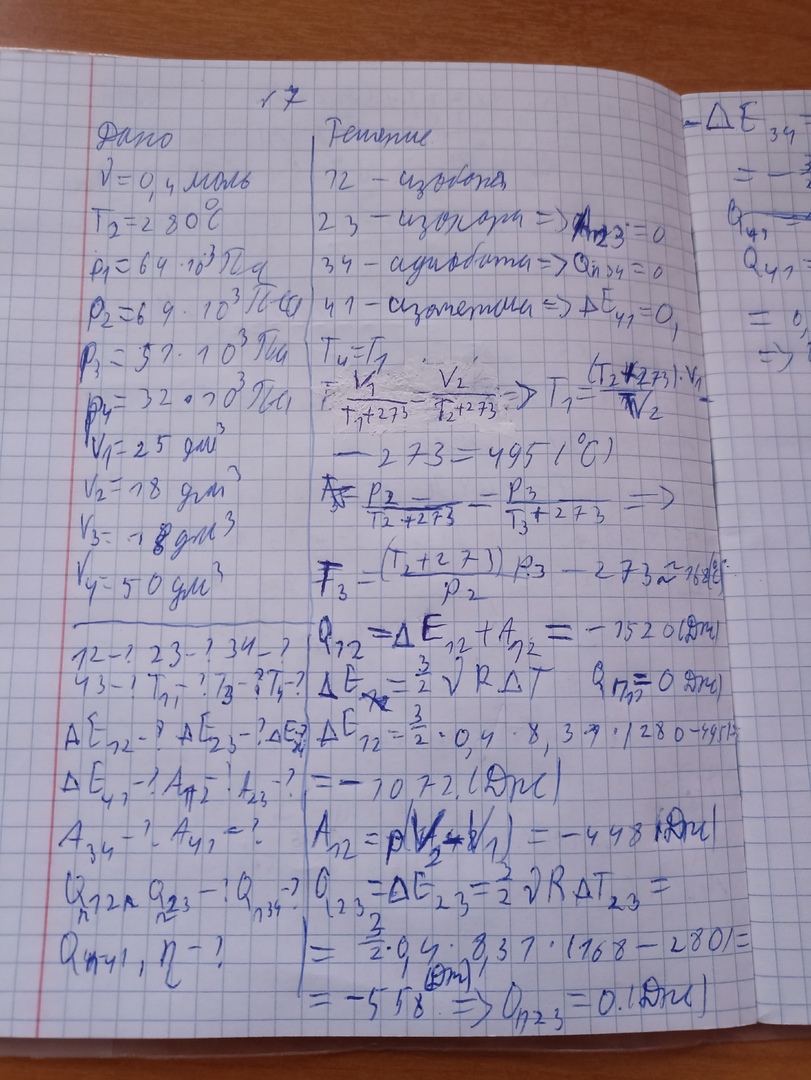 √7
Дано
ν = 0,4 моль
T₂ = 280°C
p₁ = 64 · 10³ Па
p₂ = 64 · 10³ Па
p₃ = 51 · 10³ Па
p₄ = 32 · 10³ Па
V₁ = 25 дм³
V₂ = 18 дм³
V₃ = 18 дм³
V₄ = 50 дм³
12 - ? 23 - ? 34 - ?
43 - ? T₁, - ? T₃ - ? T₄ - ?
ΔE₁₂ - ? ΔE₂₃ - ? ΔE₃₄ - ?
ΔE₄₁ - ? A₁₂ - ? A₂₃ - ?
A₃₄ - ? A₄₁ - ?
Qₙ₁₂, Qₙ₂₃ - ? Qₙ₃₄ - ?
Qₙ₄₁, η - ?
Решение
12 – изобара
23 – изохора => A₂₃ = 0
34 – адиабата => Qₙ₃₄ = 0
41 – изотерма => ΔE₄₁ = 0,
T₄ = T₁
V₁/(T₁+273) = V₂/(T₂+273) => T₁ = (T₂+273)·V₁/V₂ -
- 273 = 495 (°C)
p₂/(T₂+273) = p₃/(T₃+273) =>
T₃ = (T₂+273)p₃/p₂ - 273 ≈ 168(°C)
Q₁₂ = ΔE₁₂ + A₁₂ = -1520 (Дж)
ΔE = 3/2 νRΔT Qₙ₁₂ = 0 Дж)
ΔE₁₂ = 3/2 · 0,4 · 8,31 · (280-495)=
= -1072 (Дж)
A₁₂ = p(V₂-V₁) = -448 (Дж)
Q₂₃ = ΔE₂₃ = 3/2 νRΔT₂₃ =
= 3/2 · 0,4 · 8,31 · (168 - 280) =
= -558 (Дж) => Qₙ₂₃ = 0. (Дж)
-ΔE₃₄ =
= -3/2
Q₄₁ =
= 0,
=>